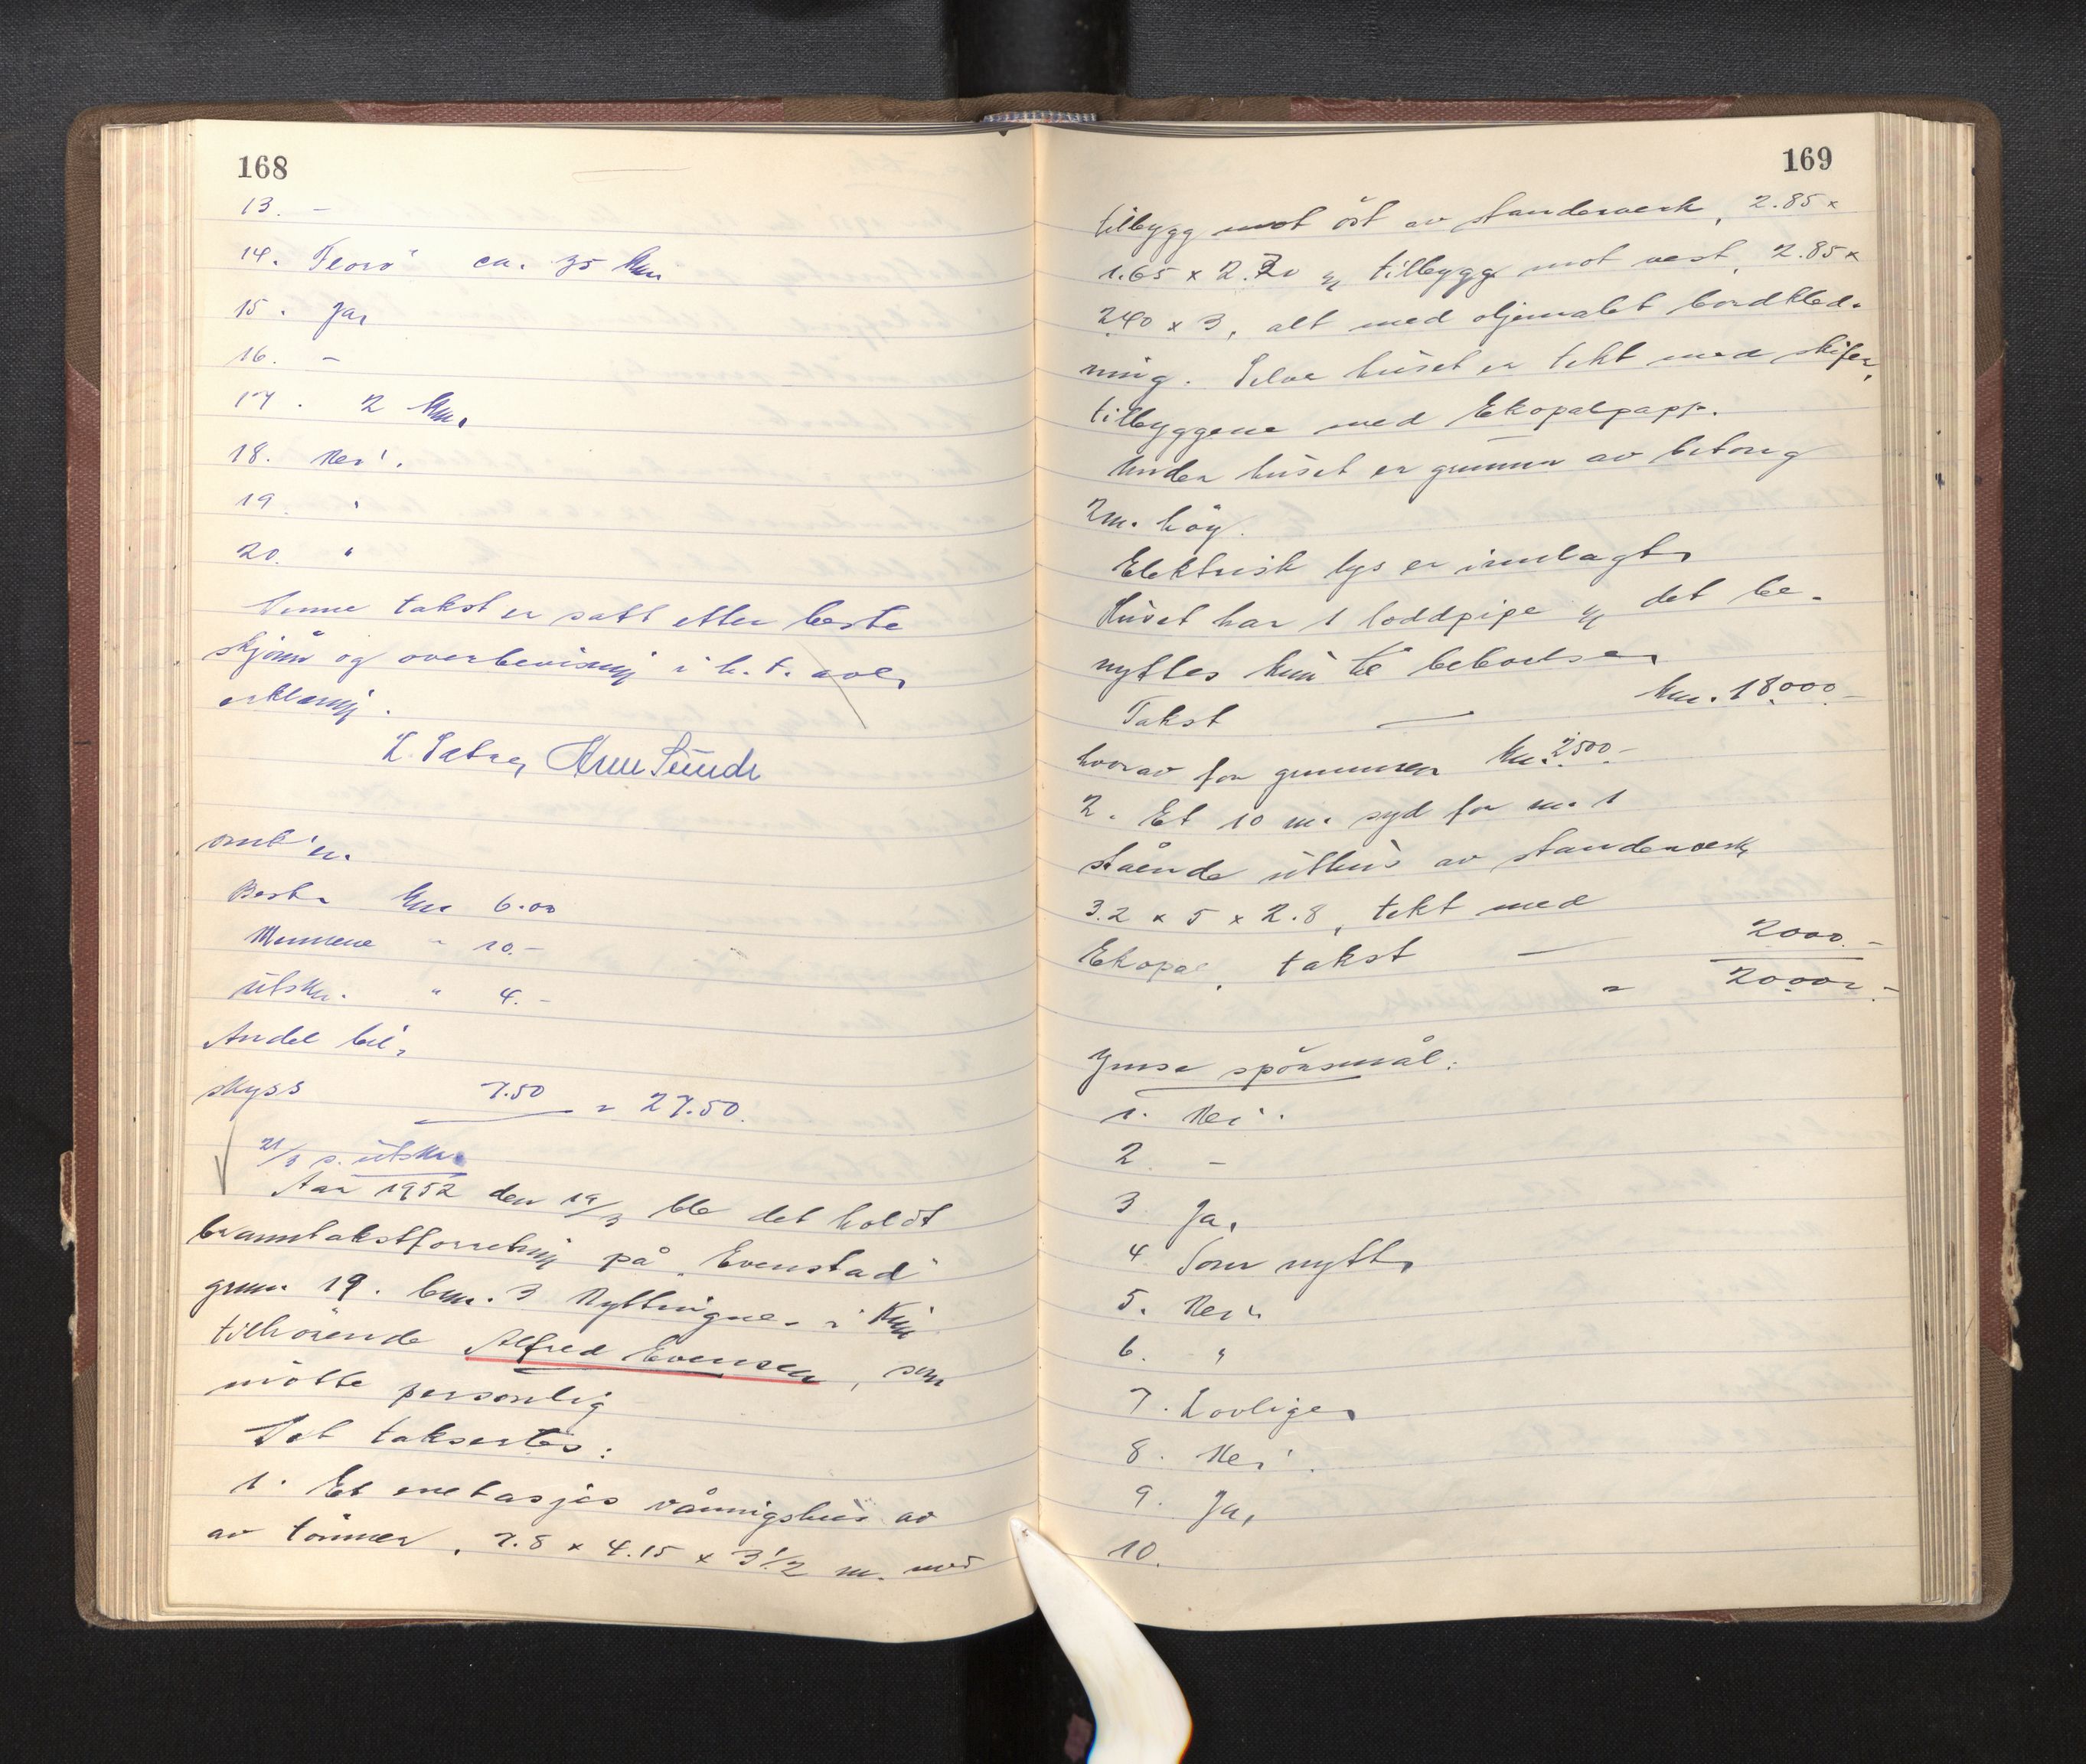 168
13. –
14. Florö ca. 35 km
15. Ja,
16. –
17. 2 km.
18. Nei.
19. "
20. "
Denne takst er satt etter beste
skjönn og overbevisning i h. t. avl.
erklæring.
L. Sætre,
omk'n.
Best. kr. 6.00
Mennene " 10.–
utskr. " 4.–
Andel bil,
skyss 7.50 = 27.50.
21/3 s. utskr.
Aar 1952 den 19/3 ble det holdt
branntakstforretning på "Evenstad"
grnr. 19. bnr. 3 Nyttingnes i Kinn
tilhörende Alfred Evensen, som
mötte personlig
Det taksertes:
1. Et enetasjes våningshus av
av tömmer, 7.8 x 4.15 x 3½ m. med
169
tilbygg mot öst av standerverk, 2.85 x
1.65 x 2.20 og tilbygg mot vest, 2.85 x
240 x 3, alt med oljemalet bordkled-
ning. Selve huset er tekt med skifer,
tilbyggene med Ekopalpapp.
Under huset er grunnmur av betong
2m. höy.
Elektrisk lys er innlagt,
Huset har 1 loddpipe og det be-
nyttes kun til beboelse,
Takst — kr. 18000.–
hvorav for grunnmuren kr. 2500.–
2. Et 10 m. syd for nr. 1
stående uthus av standerverk,
3.2 x 5 x 2.8, tekt med
Ekopal, takst — 2000.–
= 20000.–
Ymse spörsmål:
1. Nei.
2. –
3 Ja,
4 Som nytt,
5. Nei.
6. "
7. Lovlige,
8. Nei.
9. Ja,
10.